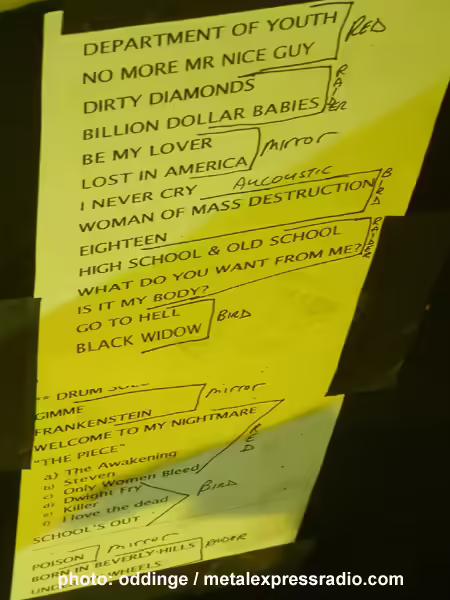 DEPARTMENT OF YOUTH RED
NO MORE MR NICE GUY
DIRTY DIAMONDS RAIDER
BILLION DOLLAR BABIES
BE MY LOVER mirror
LOST IN AMERICA
I NEVER CRY AUCOUSTIC
WOMAN OF MASS DESTRUCTION BIRD
EIGHTEEN
HIGH SCHOOL & OLD SCHOOL RAIDER
WHAT DO YOU WANT FROM ME?
IS IT MY BODY?
GO TO HELL BIRD
BLACK WIDOW
** DRUM
GIMME mirror
FRANKENSTEIN
WELCOME TO MY NIGHTMARE RED
"THE PIECE"
a) The Awakening
b) Steven
c) Only Women Bleed
d) Dwight Fry
e) Killer BIRD
f) I love the dead
SCHOOL'S OUT
POISON mirror
BORN IN BEVERLY HILLS RAIDER
WHEELS
photo: oddinge / metalexpressradio.com